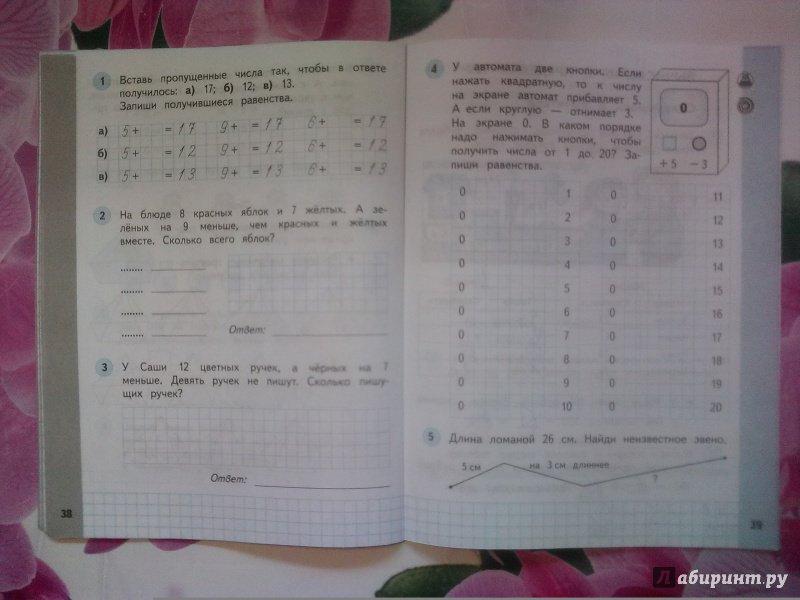 1 Вставь пропущенные числа так, чтобы в ответе
получилось: а) 17; б) 12; в) 13.
Запиши получившиеся равенства.
а) 5+ = 17 9+ = 17 6+ = 17
б) 5+ = 12 9+ = 12 6+ = 12
в) 5+ = 13 9+ = 13 6+ = 13
2 На блюде 8 красных яблок и 7 жёлтых. А зе-
лёных на 9 меньше, чем красных и жёлтых
вместе. Сколько всего яблок?
Ответ:
3 У Саши 12 цветных ручек, а чёрных на 7
меньше. Девять ручек не пишут. Сколько пишу-
щих ручек?
Ответ:
38
4 У автомата две кнопки. Если
нажать квадратную, то к числу
на экране автомат прибавляет 5.
А если круглую — отнимает 3.
На экране 0. В каком порядке
надо нажимать кнопки, чтобы
получить числа от 1 до 20? За-
пиши равенства.
0
+ 5 − 3
0 1 0 11
0 2 0 12
0 3 0 13
0 4 0 14
0 5 0 15
0 6 0 16
0 7 0 17
0 8 0 18
0 9 0 19
0 10 0 20
5 Длина ломаной 26 см. Найди неизвестное звено.
5 см на 3 см длиннее ?
39
Лабиринт.ру